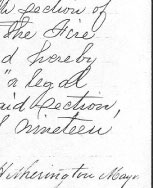 section of
The Fire
d hereby
"a legal
said Section,
nineteen
Witherington Mayor